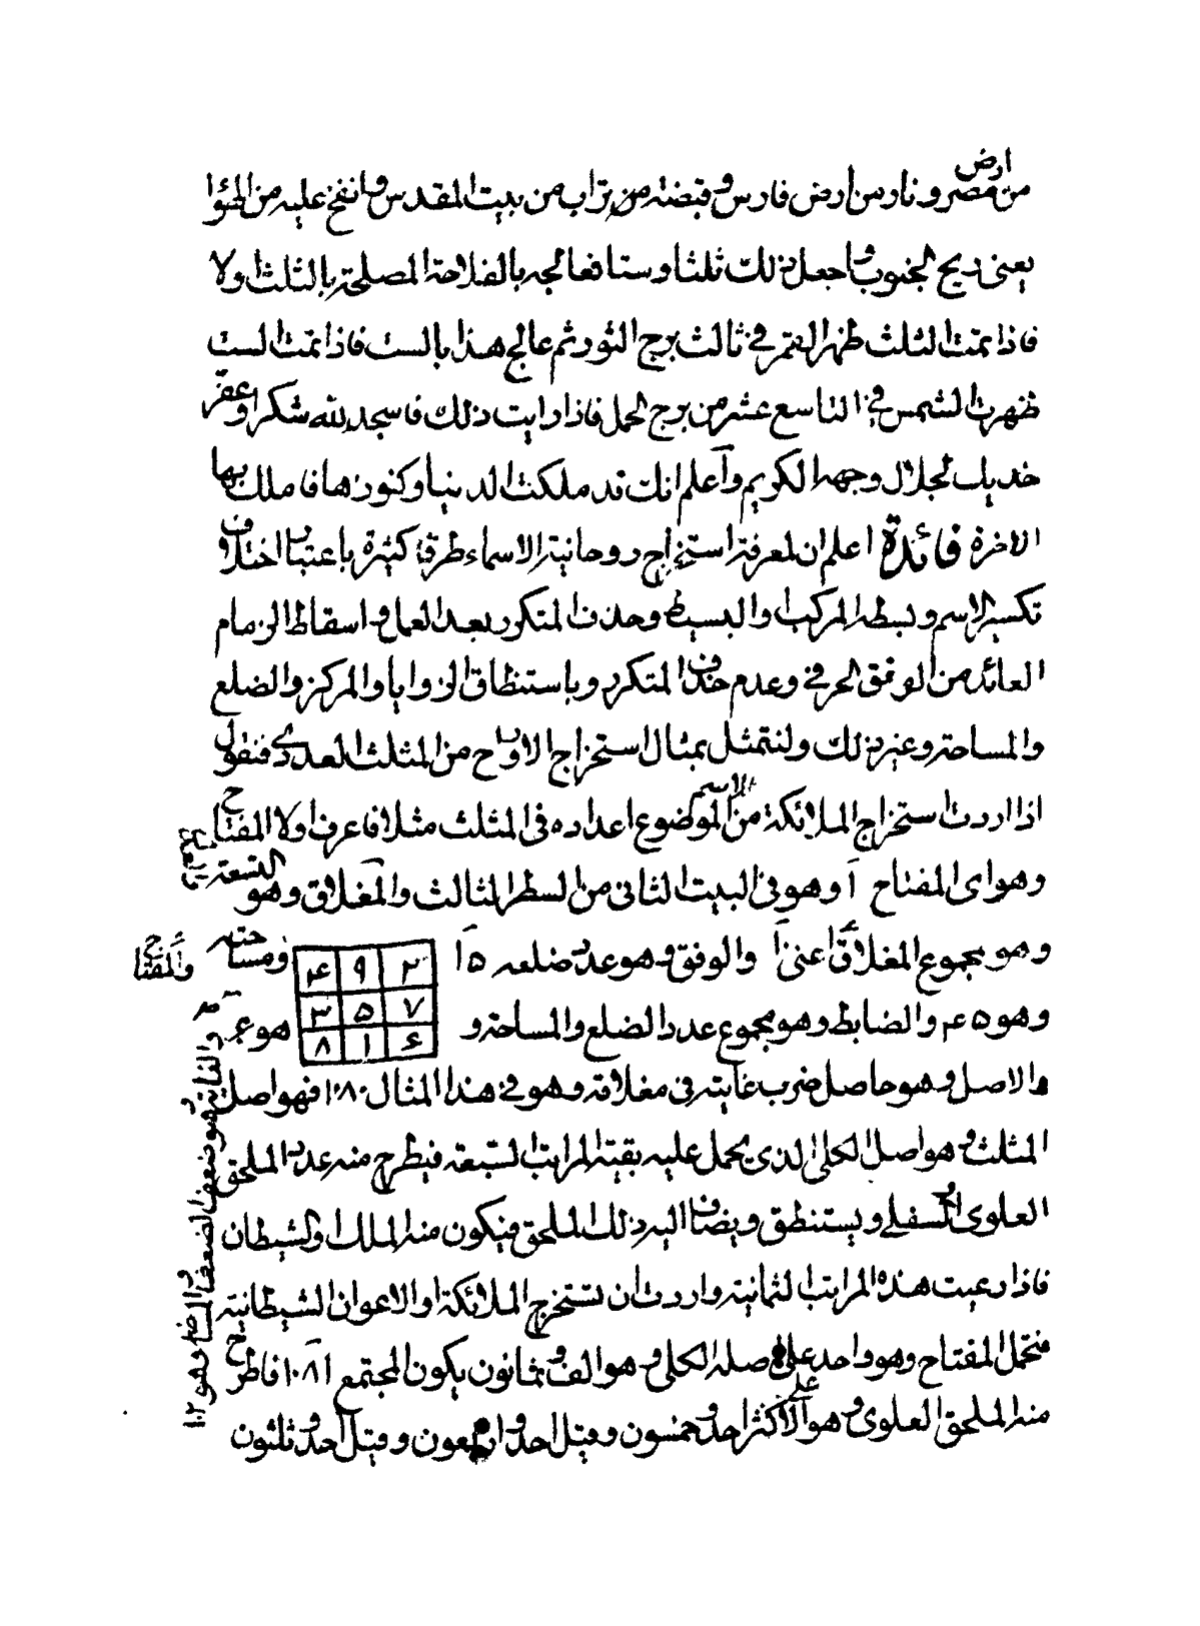 من ارض مصر ونار من ارض فارس وقبضة من تراب من بيت المقدس وانفخ عليه من الهوا
يعنى ريح الجنوب واجعل ذلك ثلثا وستا فعالجه بالفلاحة المصلحة بالثلث اولا
فاذا تمت الثلث ظهر القمر في ثالث برج الثور ثم عالج هذا بالست فاذا تمت الست
ظهرت الشمس في التاسع عشر من برج الحمل فاذا رايت ذلك فاسجد لله شكرا وعفر
خديك لجلال وجهه الكريم واعلم انك قد ملكت الدنيا وكنوزها فاملك بها
الاخرة فائدة اعلم ان لمعرفة استخراج روحانية الاسماء طرق كثيرة باعتبار اختلاف
تكسير الاسم وبسطه المركب والبسيط وحذف المتكرر بعد العمل واسقاط الزمام
العائد من الوفق الحرفي وعدم حذف المتكرر وباستنطاق الزوايا والمركز والضلع
والمساحة وغير ذلك ولنتمثل بمثال استخراج الارواح من المثلث العددى فنقول
اذا اردت استخراج الملائكة من الاسم الموضوع اعداده فى المثلث مثلا فاعرف اولا المفتاح
وهو اى المفتاح آ وهو فى البيت الثانى من السطر الثالث والمغلاق وهو التسعة
وهو مجموع المغلاق اعنى والوفق وهو عدد ضلعه ١٥ ومساحته
والمفتاح
٢ ٩ ۴
٧ ٥ ٣
٦ ١ ٨
وهو ۴٥ والضابط وهو مجموع عدد الضلع والمساحة وهو
والاصل وهو حاصل ضرب غايته فى مغلاقه وهو فى هذا المثال ١٠٨٠ فهو اصل
المثلث وهو اصل الكلى الذى يحمل عليه بقية المراتب السبعة فيطرح منه عدد الملحق
العلوى او السفلى ويستنطق ويضاف اليه ذلك الملحق فيكون منه الملك او الشيطان
فاذا رعيت هذه المراتب الثمانية واردت ان تستخرج الملائكة او الاعوان الشيطانية
فتحمل المفتاح وهو واحد على اصله الكلى وهو الف وثمانون يكون المجتمع ١٠٨١ فاطرح
منه الملحق العلوى وهو على الاكثر احد وخمسون وقيل احد واربعون وقيل احد وثلثون